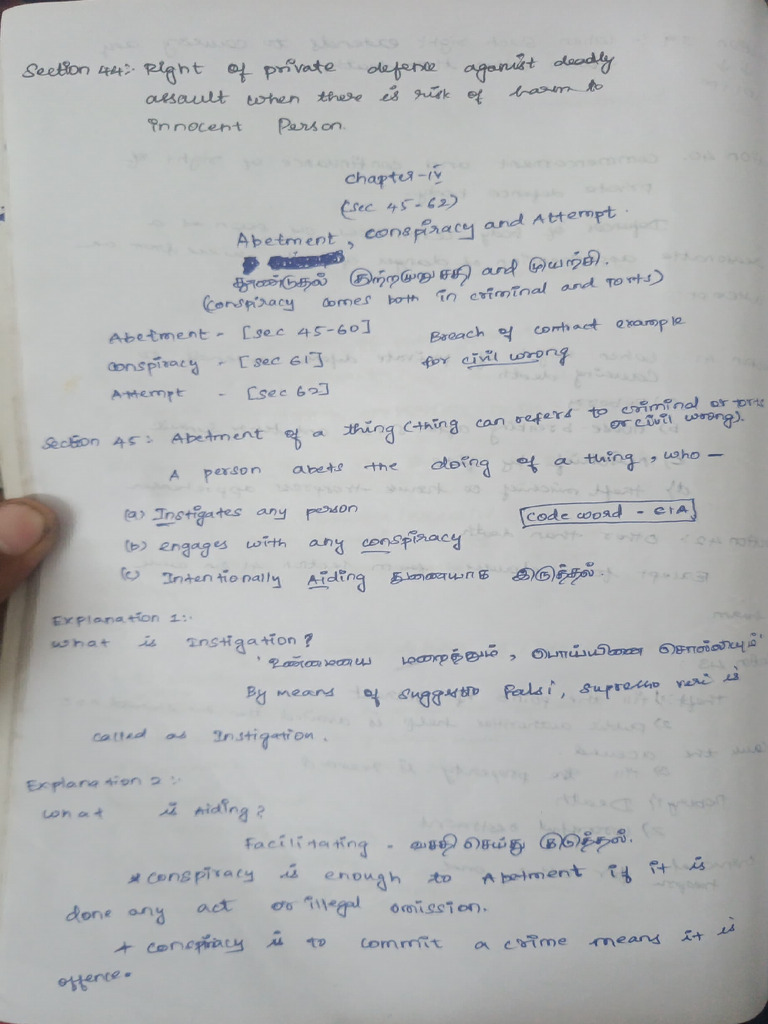 Section 44:- Right of private defence aganist deadly
assault when there is risk of harm to
innocent Person.
Chapter-IV
(sec 45-62)
Abetment, conspiracy and Attempt.
தூண்டுதல் குற்றமுறு சதி and முயற்சி.
(conspiracy comes both in criminal and Torts)
Abetment - [sec 45-60] Breach of contract example
conspiracy - [sec 61] for civil wrong
Attempt - [sec 62]
Section 45: Abetment of a thing (thing can refers to criminal or torts
or civil wrong).
A person abets the doing of a thing, who —
(a) Instigates any person
code word - CIA
(b) engages with any conspiracy
(c) Intentionally Aiding துணையாக இருத்தல்.
Explanation 1:-
what is Instigation?
'உண்மையை மறைத்தும், பொய்யினை சொல்லியும்'
By means of suggestio falsi, supresio veri is
called as Instigation.
Explanation 2:-
what is Aiding?
Facilitating - வசதி செய்து கொடுத்தல்.
* conspiracy is enough to Abetment if it is
done any act or illegal omission.
* conspiracy is to commit a crime means it is
offence.